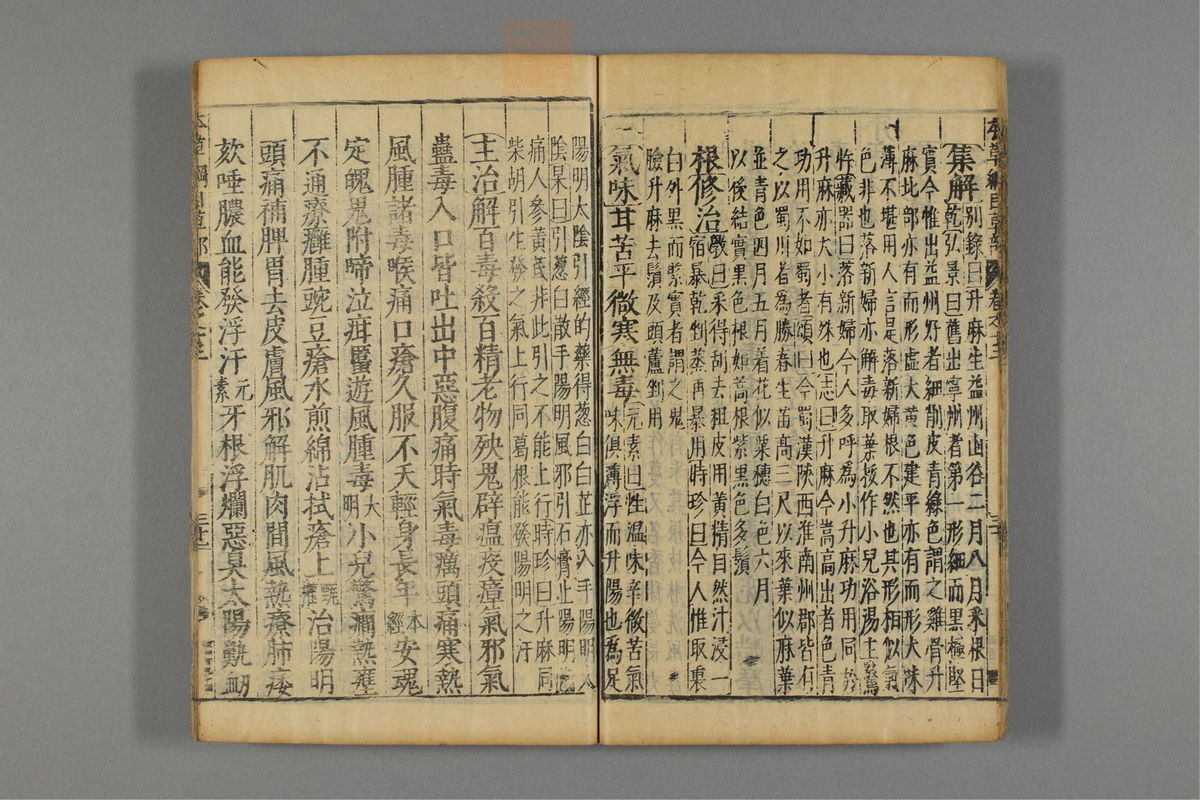 集解別錄曰升麻生益州山谷二月八月采根日
乾弘景曰舊出寧州者第一形細而黑極堅
實今惟出益州好者細削皮青綠色謂之雞骨升
麻北部亦有而形虛大黃色建平亦有而形大味
薄不堪用人言是落新婦根不然也其形相似氣
色非也落新婦亦解毒取葉挼作小兒浴湯主驚
忤藏器曰落新婦今人多呼為小升麻功用同於
升麻亦大小有殊也志曰升麻今嵩高出者色青
功用不如蜀者頌曰今蜀漢陝西淮南州郡皆有
之以蜀川者為勝春生苗高三尺以來葉似麻葉
並青色四月五月着花似粟穗白色六月
以後結實黑色根如蒿根紫黑色多鬚
根修治斅曰采得刮去粗皮用黃精自然汁浸一
宿暴乾剉蒸再暴用時珍曰今人惟取裏
白外黑而緊實者謂之鬼
臉升麻去鬚及頭蘆剉用
氣味甘苦平微寒無毒元素曰性溫味辛微苦氣
味俱薄浮而升陽也為足
陽明大陰引經的藥得葱白白芷亦入手陽明大
陰杲曰引葱白散手陽明風邪引石膏止陽明齒
痛人參黃茋非此引之不能上行時珍曰升麻同
柴胡引生發之氣上行同葛根能發陽明之汗
主治解百毒殺百精老物殃鬼辟瘟疫瘴氣邪氣
蠱毒入口皆吐出中惡腹痛時氣毒癘頭痛寒熱
風腫諸毒喉痛口瘡久服不夭輕身長年本經安魂
定魄鬼附啼泣疳䘌遊風腫毒大明小兒驚癇熱壅
不通療癰腫豌豆瘡水煎綿沾拭瘡上甄權治陽明
頭痛補脾胃去皮膚風邪解肌肉間風熱療肺痿
欬唾膿血能發浮汗元素牙根浮爛惡臭太陽鼽衂
本草綱目草部